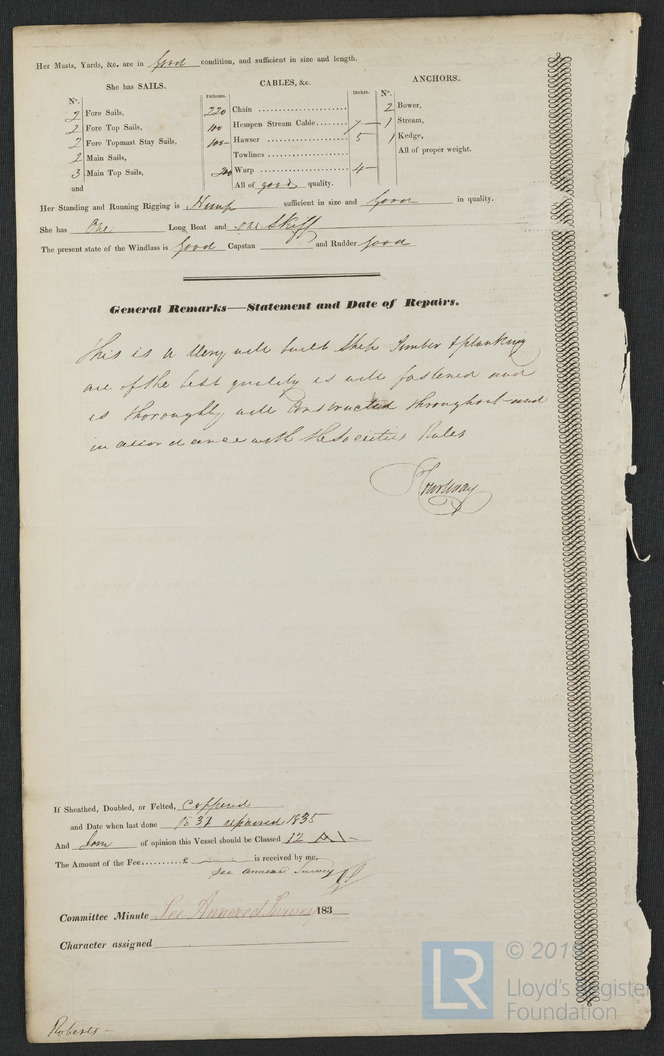 Her Masts, Yards, &c. are in Good condition, and sufficient in size and length.
She has SAILS.
CABLES, &c.
ANCHORS.
N°.
Fathoms.
Inches.
N°.
2 Fore Sails,
220 Chain
2 Bower,
2 Fore Top Sails,
100 Hempen Stream Cable 7
1 Stream,
2 Fore Topmast Stay Sails,
100 Hawser 5
1 Kedge,
2 Main Sails,
Towlines
All of proper weight.
3 Main Top Sails,
200 Warp 4
and
All of good quality.
Her Standing and Running Rigging is Hemp sufficient in size and Good in quality.
She has One Long Boat and one Skiff
The present state of the Windlass is Good Capstan and Rudder good
General Remarks—Statement and Date of Repairs.
This is a Very well built Ship Timber & planking
are of the best quality is well fastened and
is thoroughly well Constructed throughout and
in accordance with the Societies Rules
If Sheathed, Doubled, or Felted, Coppered
and Date when last done 1831 repaired 1835
And I am of opinion this Vessel should be Classed 12 A1
The Amount of the Fee..........£ is received by me,
see annexed Survey
Committee Minute See Annexed Survey 183
Character assigned
Roberts
LR
© 2019
Lloyd's Register
Foundation